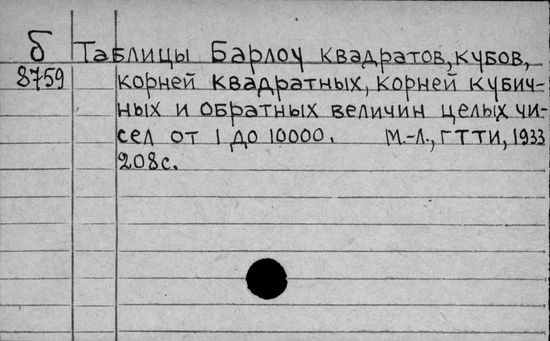 б Таблицы Барлоу квадратов, кубов,
8759 корней квадратных, корней кубич-
ных и обратных величин целых чи-
сел от 1 до 10000. М.-Л., ГТТИ, 1933
208с.